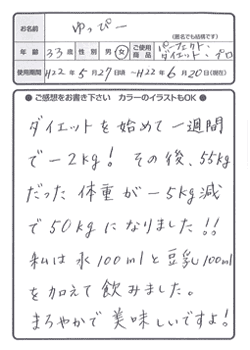 お名前 ゆっぴー
(匿名でも結構です)
年齢 33才 性別 男・女 ご使用商品 パーフェクト・ダイエット・プロ
使用期間 H22年5月27日頃〜H22年6月20日(現在)
● ご感想をお書き下さい カラーのイラストもOK ●
ダイエットを始めて一週間
で−2kg! その後、55kg
だった体重が−5kg減
で50kgになりました!!
私は水100mlと豆乳100ml
を加えて飲みました。
まろやかで美味しいですよ!